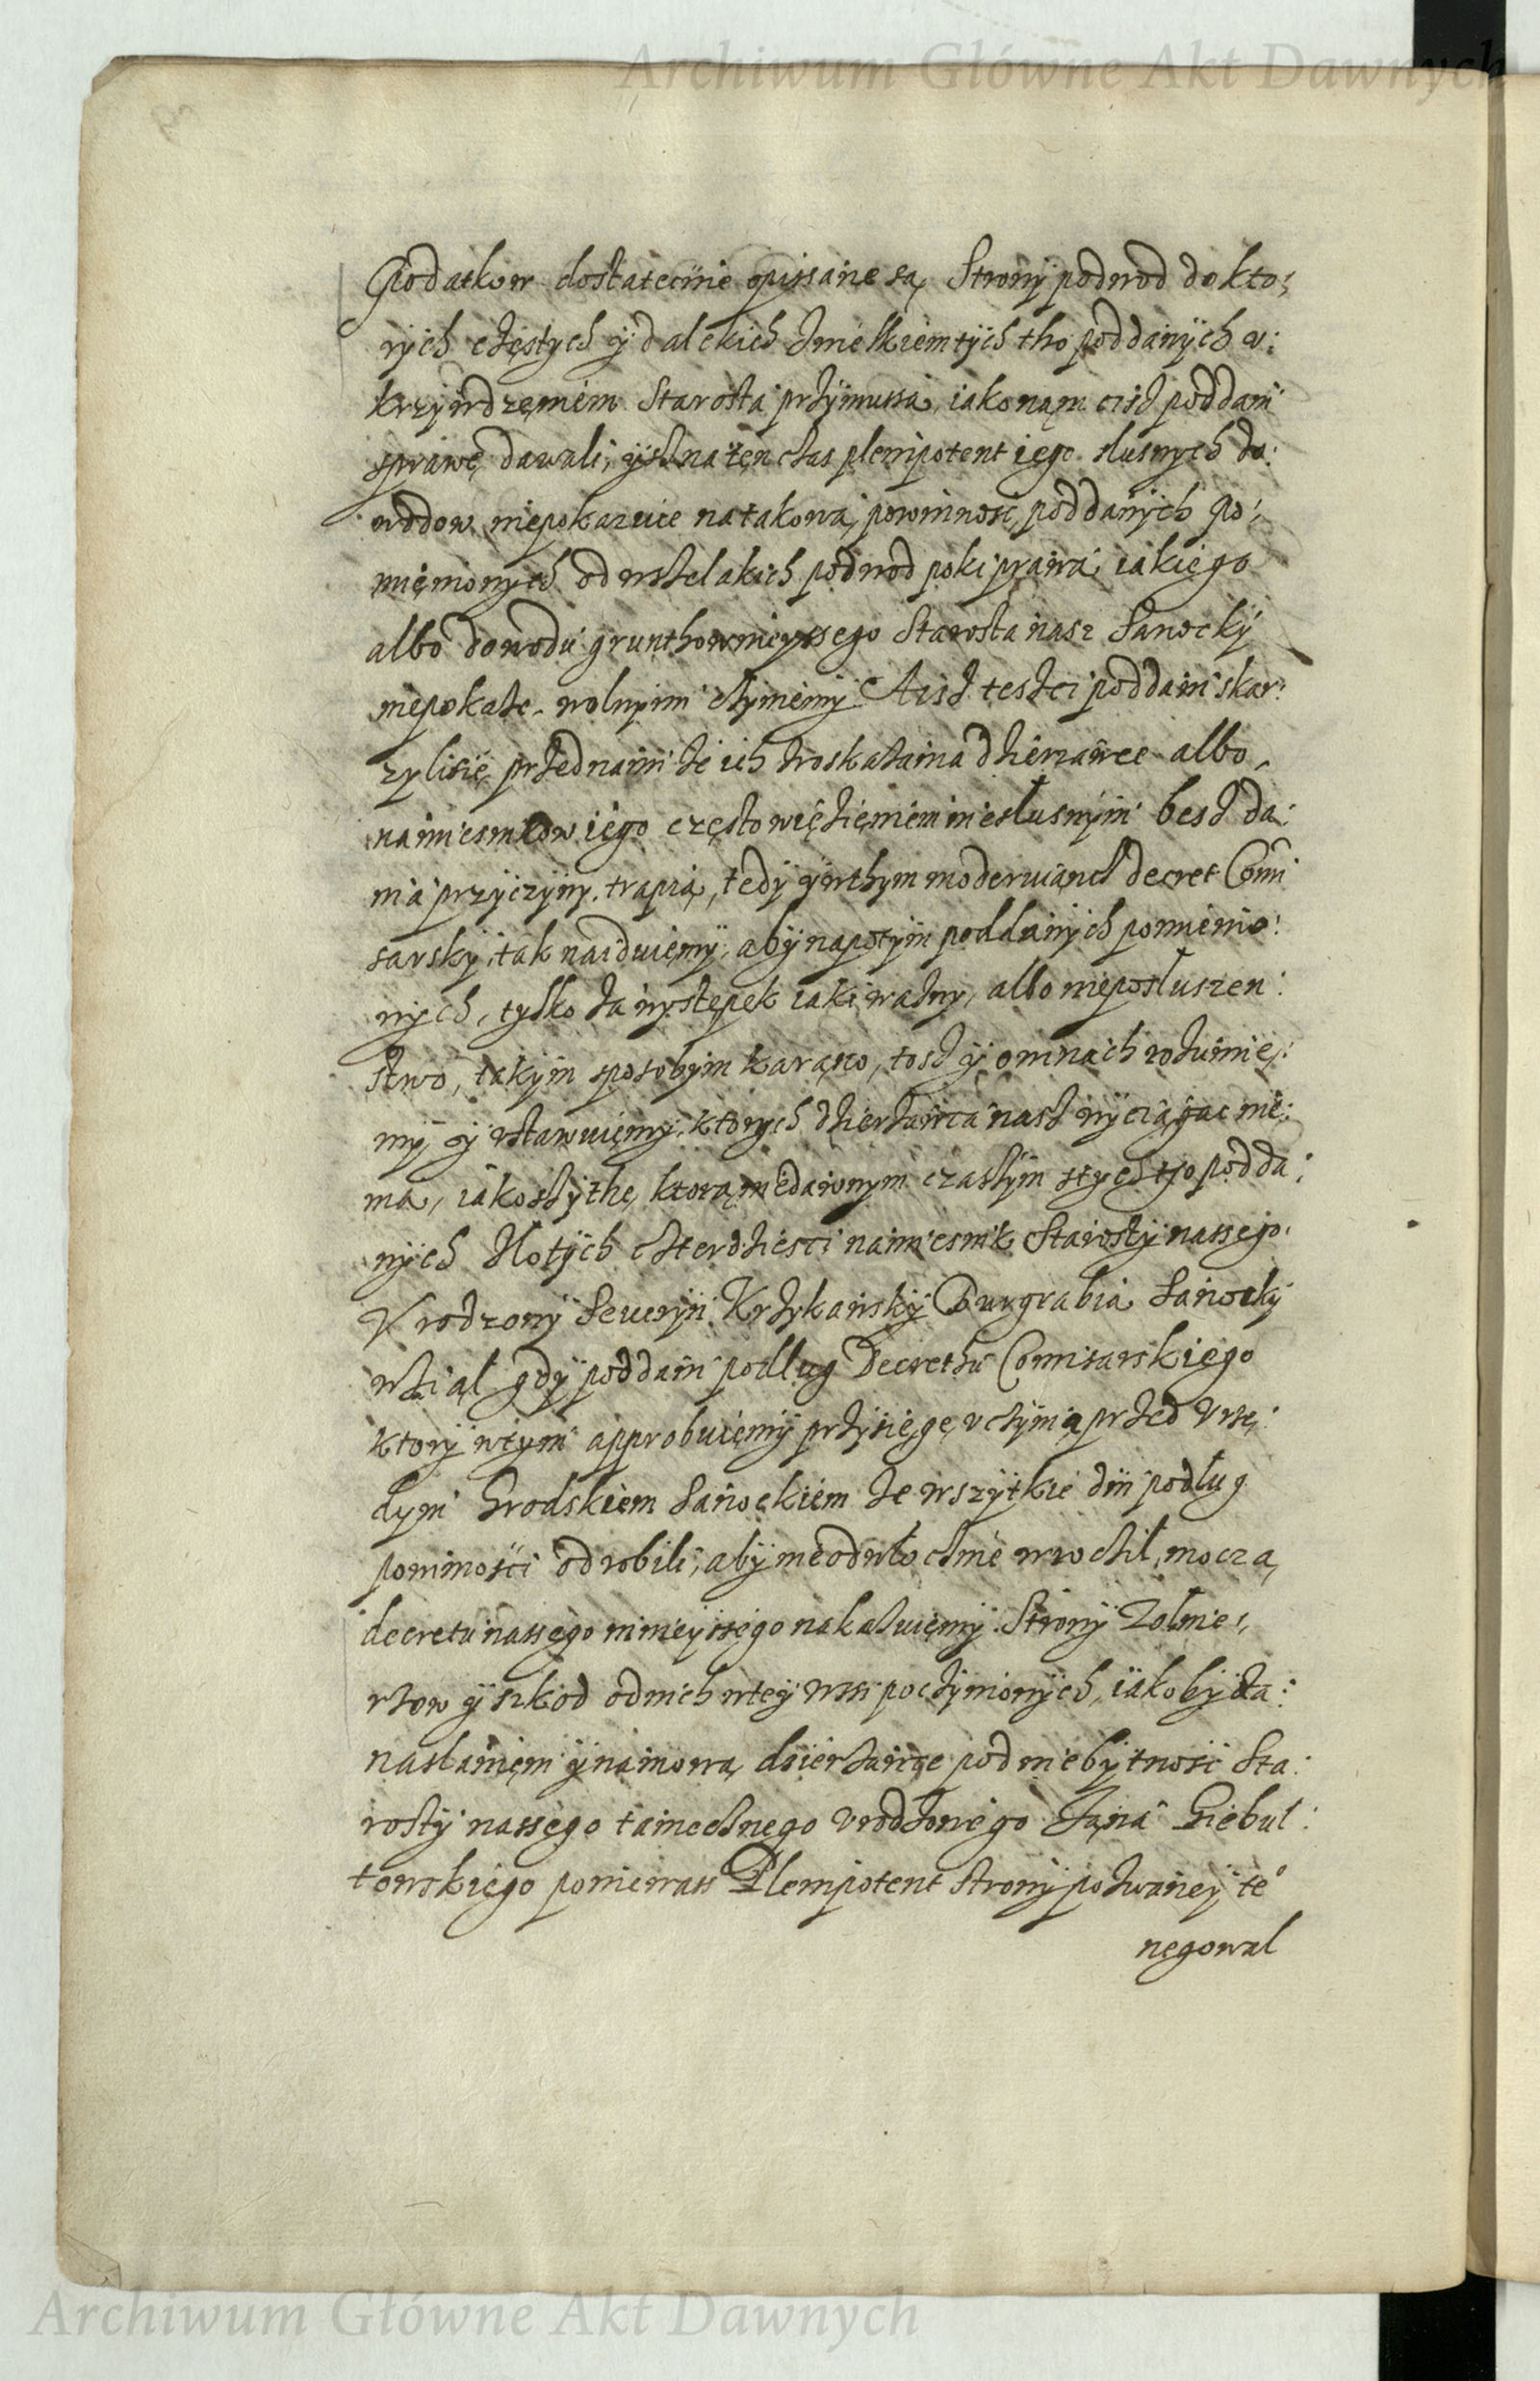 Archiwum Główne Akt Dawnych
Podatkow dostatecznie opissane są, Strony podwod do kto:
rych częstych y dalekich z wielkiem tych tho poddanych v:
krzywdzeniem Starosta przymussa, iako nąm cisz poddani
sprawę dawali, ysz na ten czas plenipotent iego slusnych do:
wodow niepokazuie na takową powinnosc, poddanych po:
mięnionych od wszelakich podwod poki prawa iakiego
albo dowodu grunthownieyssego Starosta nasz Sanocky
niepokaże, wolnymi czyniemy. A isz tesz ci poddani skar:
zyli się przed nami że ich zroskazania dzierzawce albo
namiesnikow iego często więzieniem nieslusnym besz da:
nia przyczyny trapią, tedy y w thym moderuiąncz decret Comi
sarsky, tak naiduiemy, aby napotym poddanych pomienio:
nych, tylko za występek iaki ważny, albo nieposłuszen:
stwo, takym sposobym karąno, tosz y o winach rozumie:
my y vstawuięmy, ktorych dzierżawca nasz wyciągac nie:
ma, iakosz y the, ktorą niedawnym czassym s tych tho podda:
nych złotych czterdziesci namiesnik Starosty nassego
Vrodzony Seweryn Krzykawsky Burgrabia Sanocky
wzial gdy poddani podlug Decrethu Comisarskiego
ktory w tym approbuięmy przysięgę vczynią przed Vrzę:
dym Grodskiem Sanockiem że wszytkie dni podług
powinosci odrobili, aby nieodwłocznie wrocił, moczą
decretu nassego nineyssego nakazuięmy. Strony Zolnie:
rzow y szkod od nich w tey wssi poczynionych, iakoby za:
nasłaniem y namową dzierzawce pod niebytnosc Sta:
rosty nassego tamecznego vrodzonego Jana Giebul:
towskiego poniewass Plenipotent strony pozwaney te°
negowal
Archiwum Główne Akt Dawnych